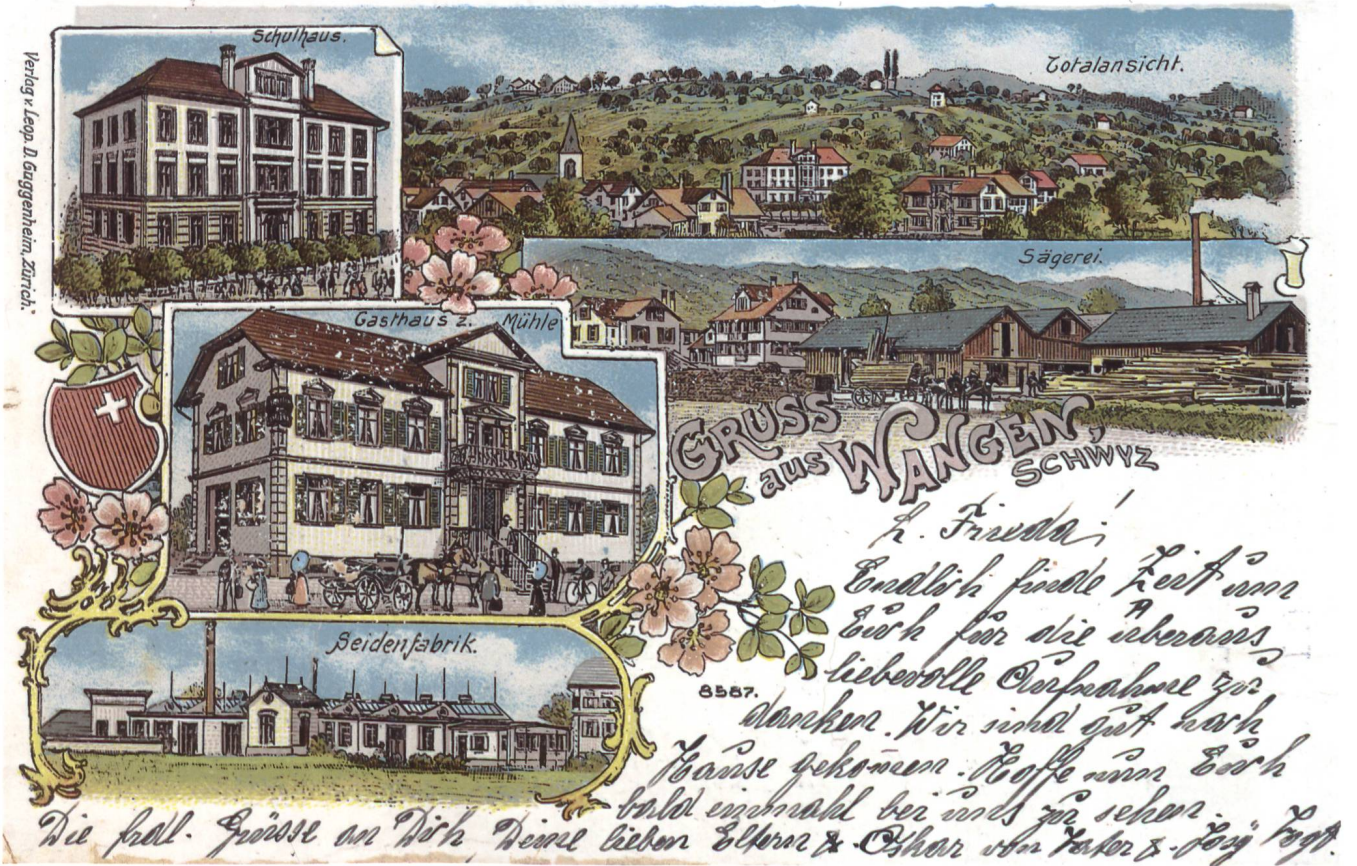 Verlag v. Leop. D. Guggenheim, Zürich."
Schulhaus.
Totalansicht.
Sägerei.
Gasthaus z. Mühle
GRUSS
aus WANGEN,
SCHWYZ
Seidenfabrik.
8587.
L. Frieda!
Endlich finde Zeit um
Euch für die überaus
liebevolle Aufnahme zu
danken. Wir sind gut nach
Hause gekommen. Hoffe nun Euch
bald einmahl bei uns zu sehen.
Die frdl. Grüsse an Dich, Deine lieben Eltern & Oskar von Vater &